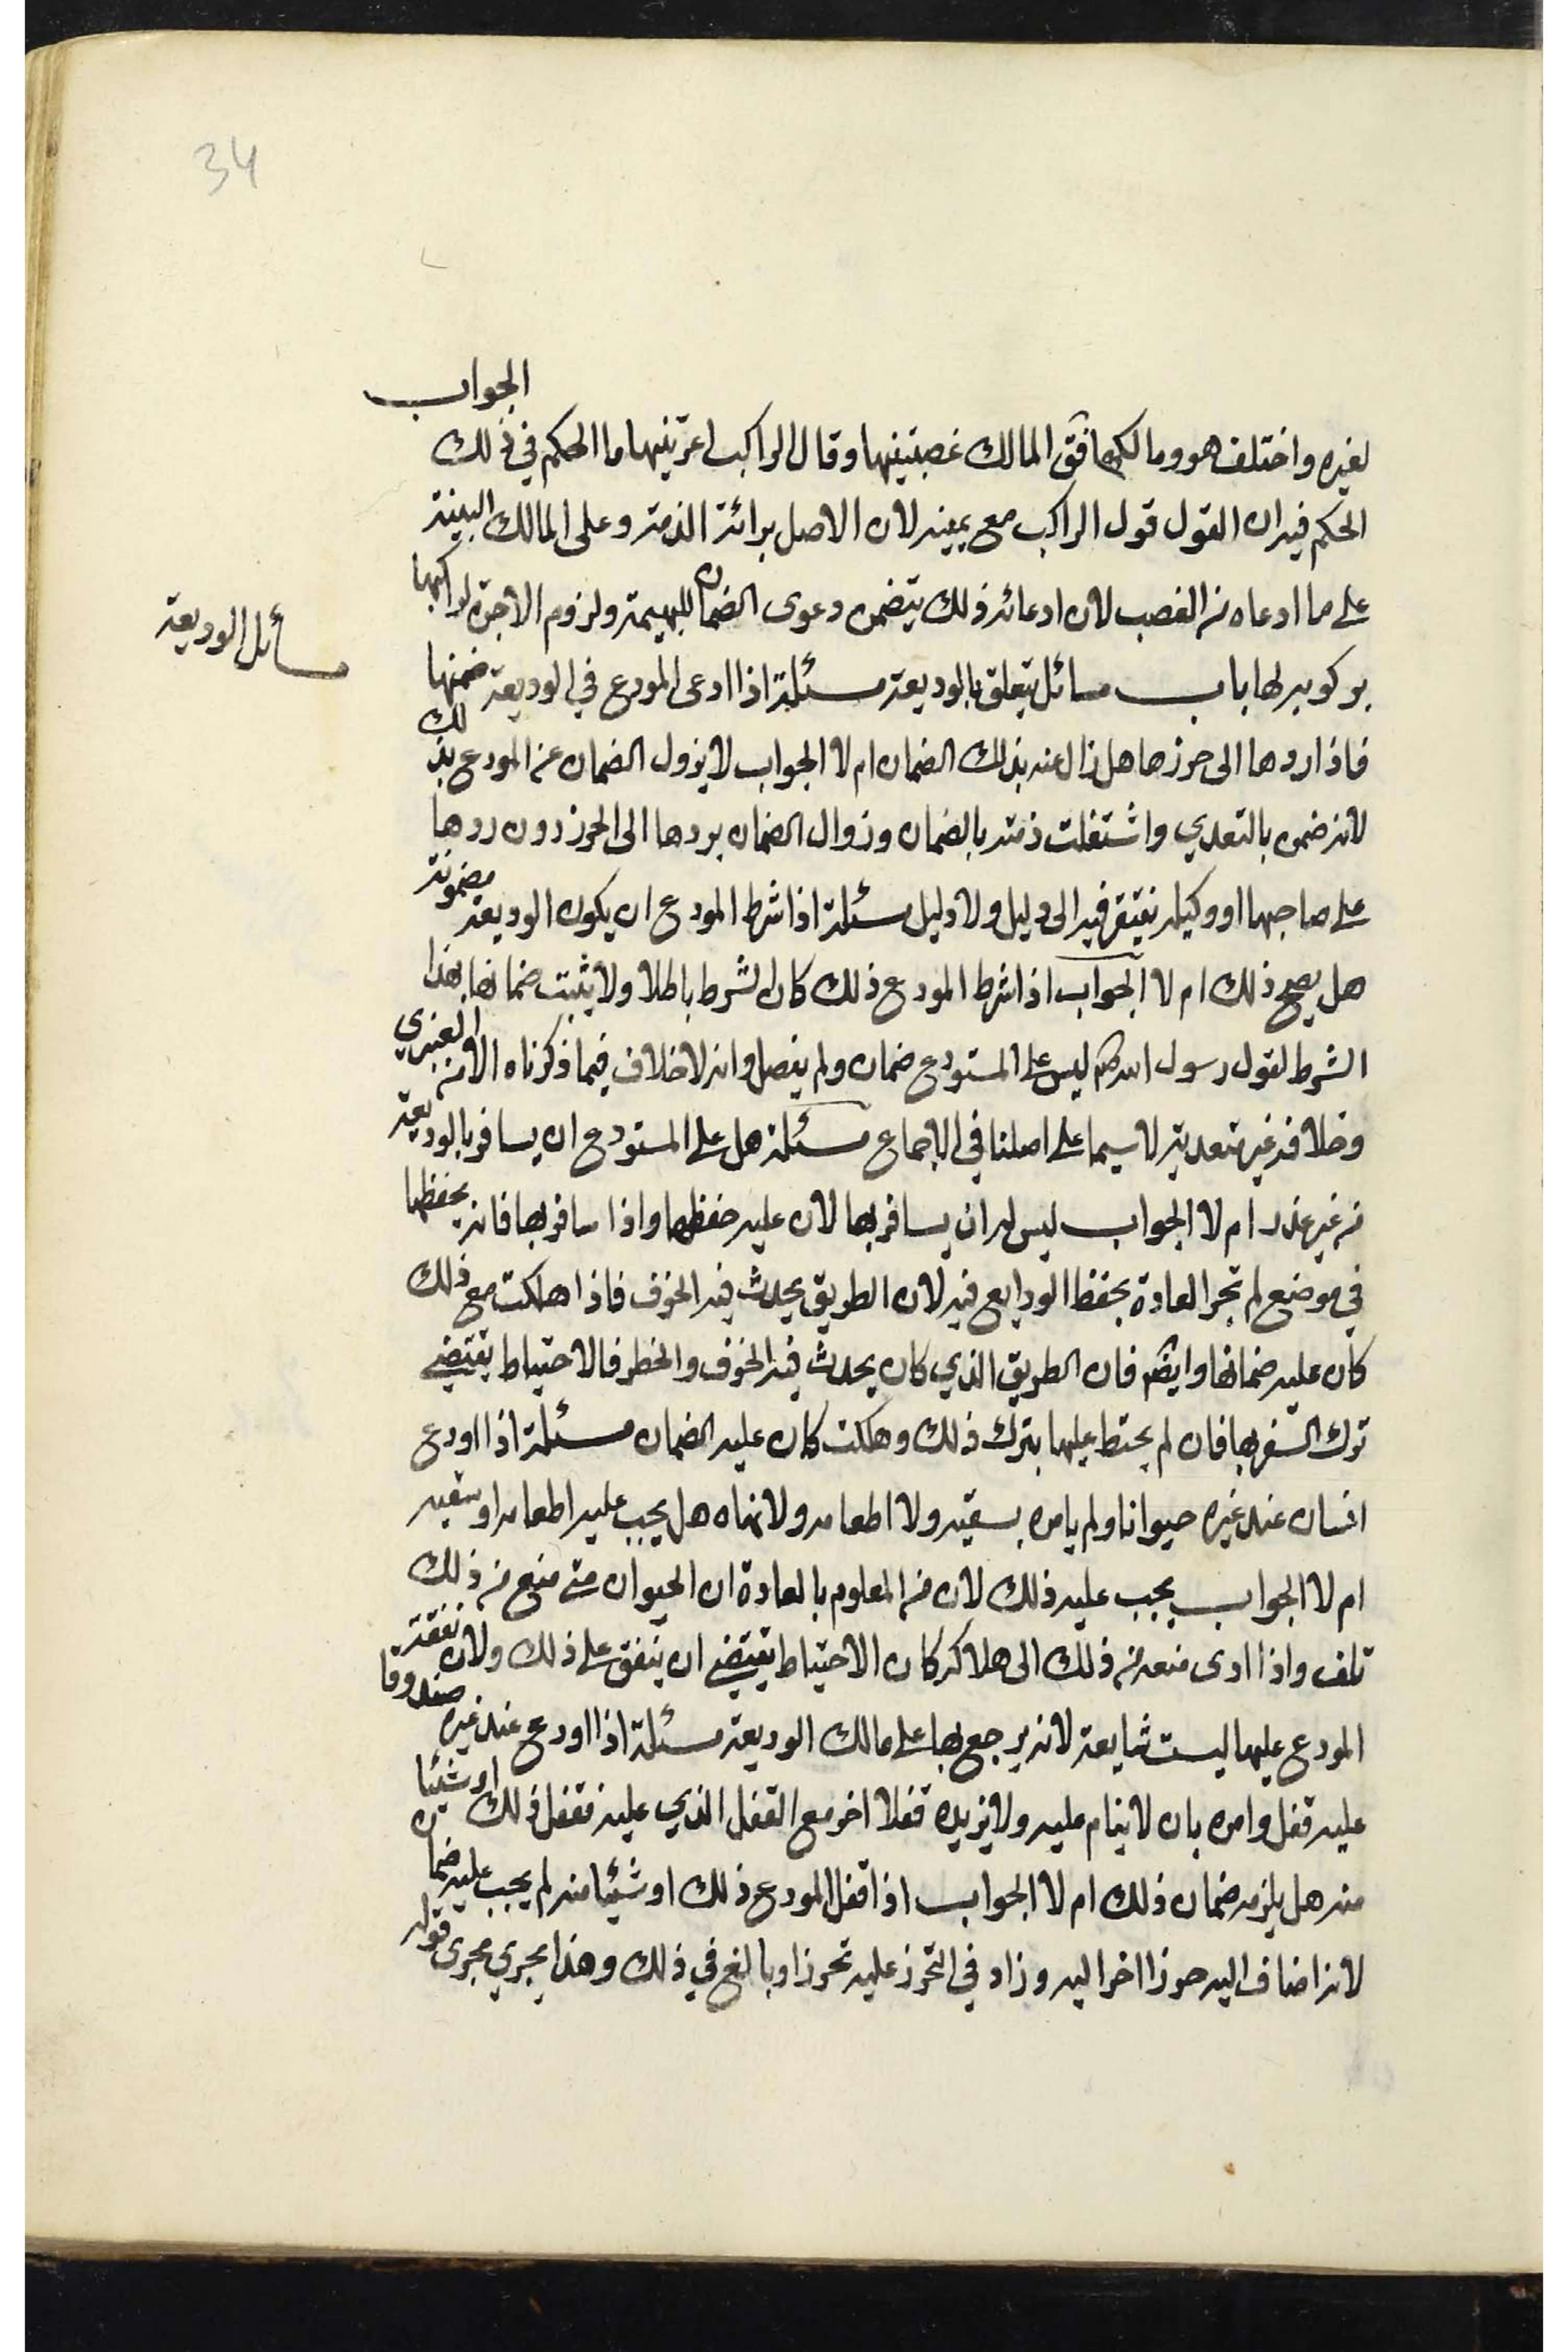 34
لغيره واختلف هو ومالكها فقال المالك غصبتنيها وقال الراكب اعرتنيها ما الحكم في ذلك الجواب
الحكم فيه ان القول قول الراكب مع يمينه لان الاصل برائة الذمة وعلى المالك البينة
على ما ادعاه من الغصب لان ادعائه ذلك يتضمن دعوى الضمان للبهيمة ولزوم الاجرة لراكبها
مسائل الوديعة
بركوبه لها باب مسائل يتعلق بالوديعة مسئلة اذا ادعى المودع في الوديعة ضمنها
فاذا ردها الى حرزها هل زال عنه بذلك الضمان ام لا الجواب لا يزول الضمان عن المودع بذلك
لانه ضمن بالتعدي واشتغلت ذمته بالضمان وزوال الضمان بردها الى الحرز دون ردها
على صاحبها او وكيله يفتقر فيه الى دليل ولا دليل مسئلة اذا شرط المودع ان يكون الوديعة مضمونة
هل يصح ذلك ام لا الجواب اذا شرط المودع ذلك كان الشرط باطلا ولا يثبت ضمانها بهذا
الشرط لقول رسول الله صلم ليس على المستودع ضمان ولم يفصل وانه لا خلاف فيما ذكرناه الا من العنبري
وخلافه غير متعد به لا سيما على اصلنا في الاجماع مسئلة هل على المستودع ان يسافر بالوديعة
من غير عذر ام لا الجواب ليس له ان يسافر بها لان عليه حفظها واذا سافر بها فانه يحفظها
في موضع لم تجر العادة بحفظ الودايع فيه لان الطريق يحدث فيه الخوف فاذا هلكت مع ذلك
كان عليه ضمانها وايضم فان الطريق الذي كان يحدث فيه الخوف والخطر فالاحتياط يقتضي
ترك السفر بها فان لم يحتط عليها بترك ذلك وهلكت كان عليه الضمان مسئلة اذا اودع
انسان عند غيره حيوانا ولم يامره بسقيه ولا اطعامه ولا نهاه هل يجب عليه اطعامه او سقيه
ام لا الجواب يجب عليه ذلك لان من المعلوم بالعادة ان الحيوان متى منع من ذلك
تلف واذا ادى منعه من ذلك الى هلاكه كان الاحتياط يقتضي ان ينفق على ذلك ولان نفقة
المودع عليها ليست ضايعة لانه يرجع بها على مالك الوديعة مسئلة اذا اودع عند غيره صندوقا
عليه قفل وامره بان لا ينام عليه ولا يزيده قفلا اخر مع القفل الذي عليه فقفل ذلك او شيئا
منه هل يلزمه ضمان ذلك ام لا الجواب اذا قفل المودع ذلك او شيئا منه لم يجب عليه ضمان
لانه اضاف اليه حرزا اخر اليه وزاد في التحرز عليه تحرزا وبالغ في ذلك وهذا يجري مجرى قوله